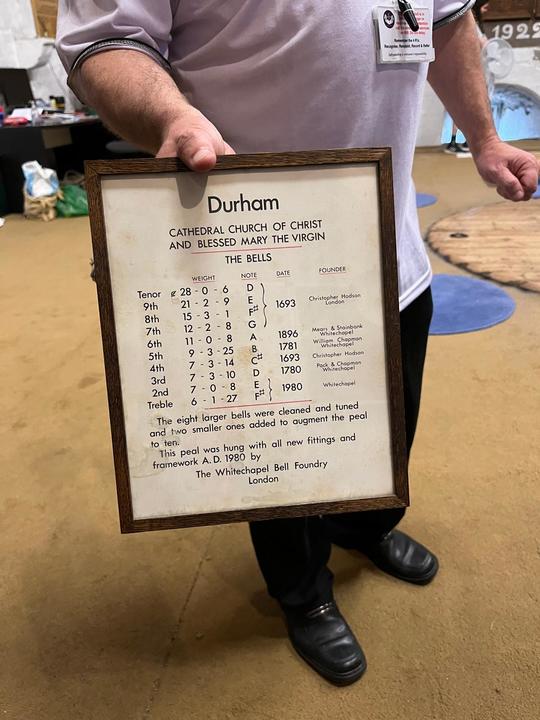 Durham
CATHEDRAL CHURCH OF CHRIST
AND BLESSED MARY THE VIRGIN
THE BELLS
WEIGHT NOTE DATE FOUNDER
Tenor 28 - 0 - 6 D
9th 21 - 2 - 9 E 1693 Christopher Hodson London
8th 15 - 3 - 1 F#
7th 12 - 2 - 8 G
6th 11 - 0 - 8 A 1896 Mears & Stainbank Whitechapel
5th 9 - 3 - 25 B 1781 William Chapman Whitechapel
4th 7 - 3 - 14 C# 1693 Christopher Hodson
3rd 7 - 3 - 10 D 1780 Pack & Chapman Whitechapel
2nd 7 - 0 - 8 E 1980 Whitechapel
Treble 6 - 1 - 27 F#
The eight larger bells were cleaned and tuned
and two smaller ones added to augment the peal
to ten.
This peal was hung with all new fittings and
framework A.D. 1980 by
The Whitechapel Bell Foundry
London
Remember the 4 R's
Recognise, Respond, Record & Refer
1922